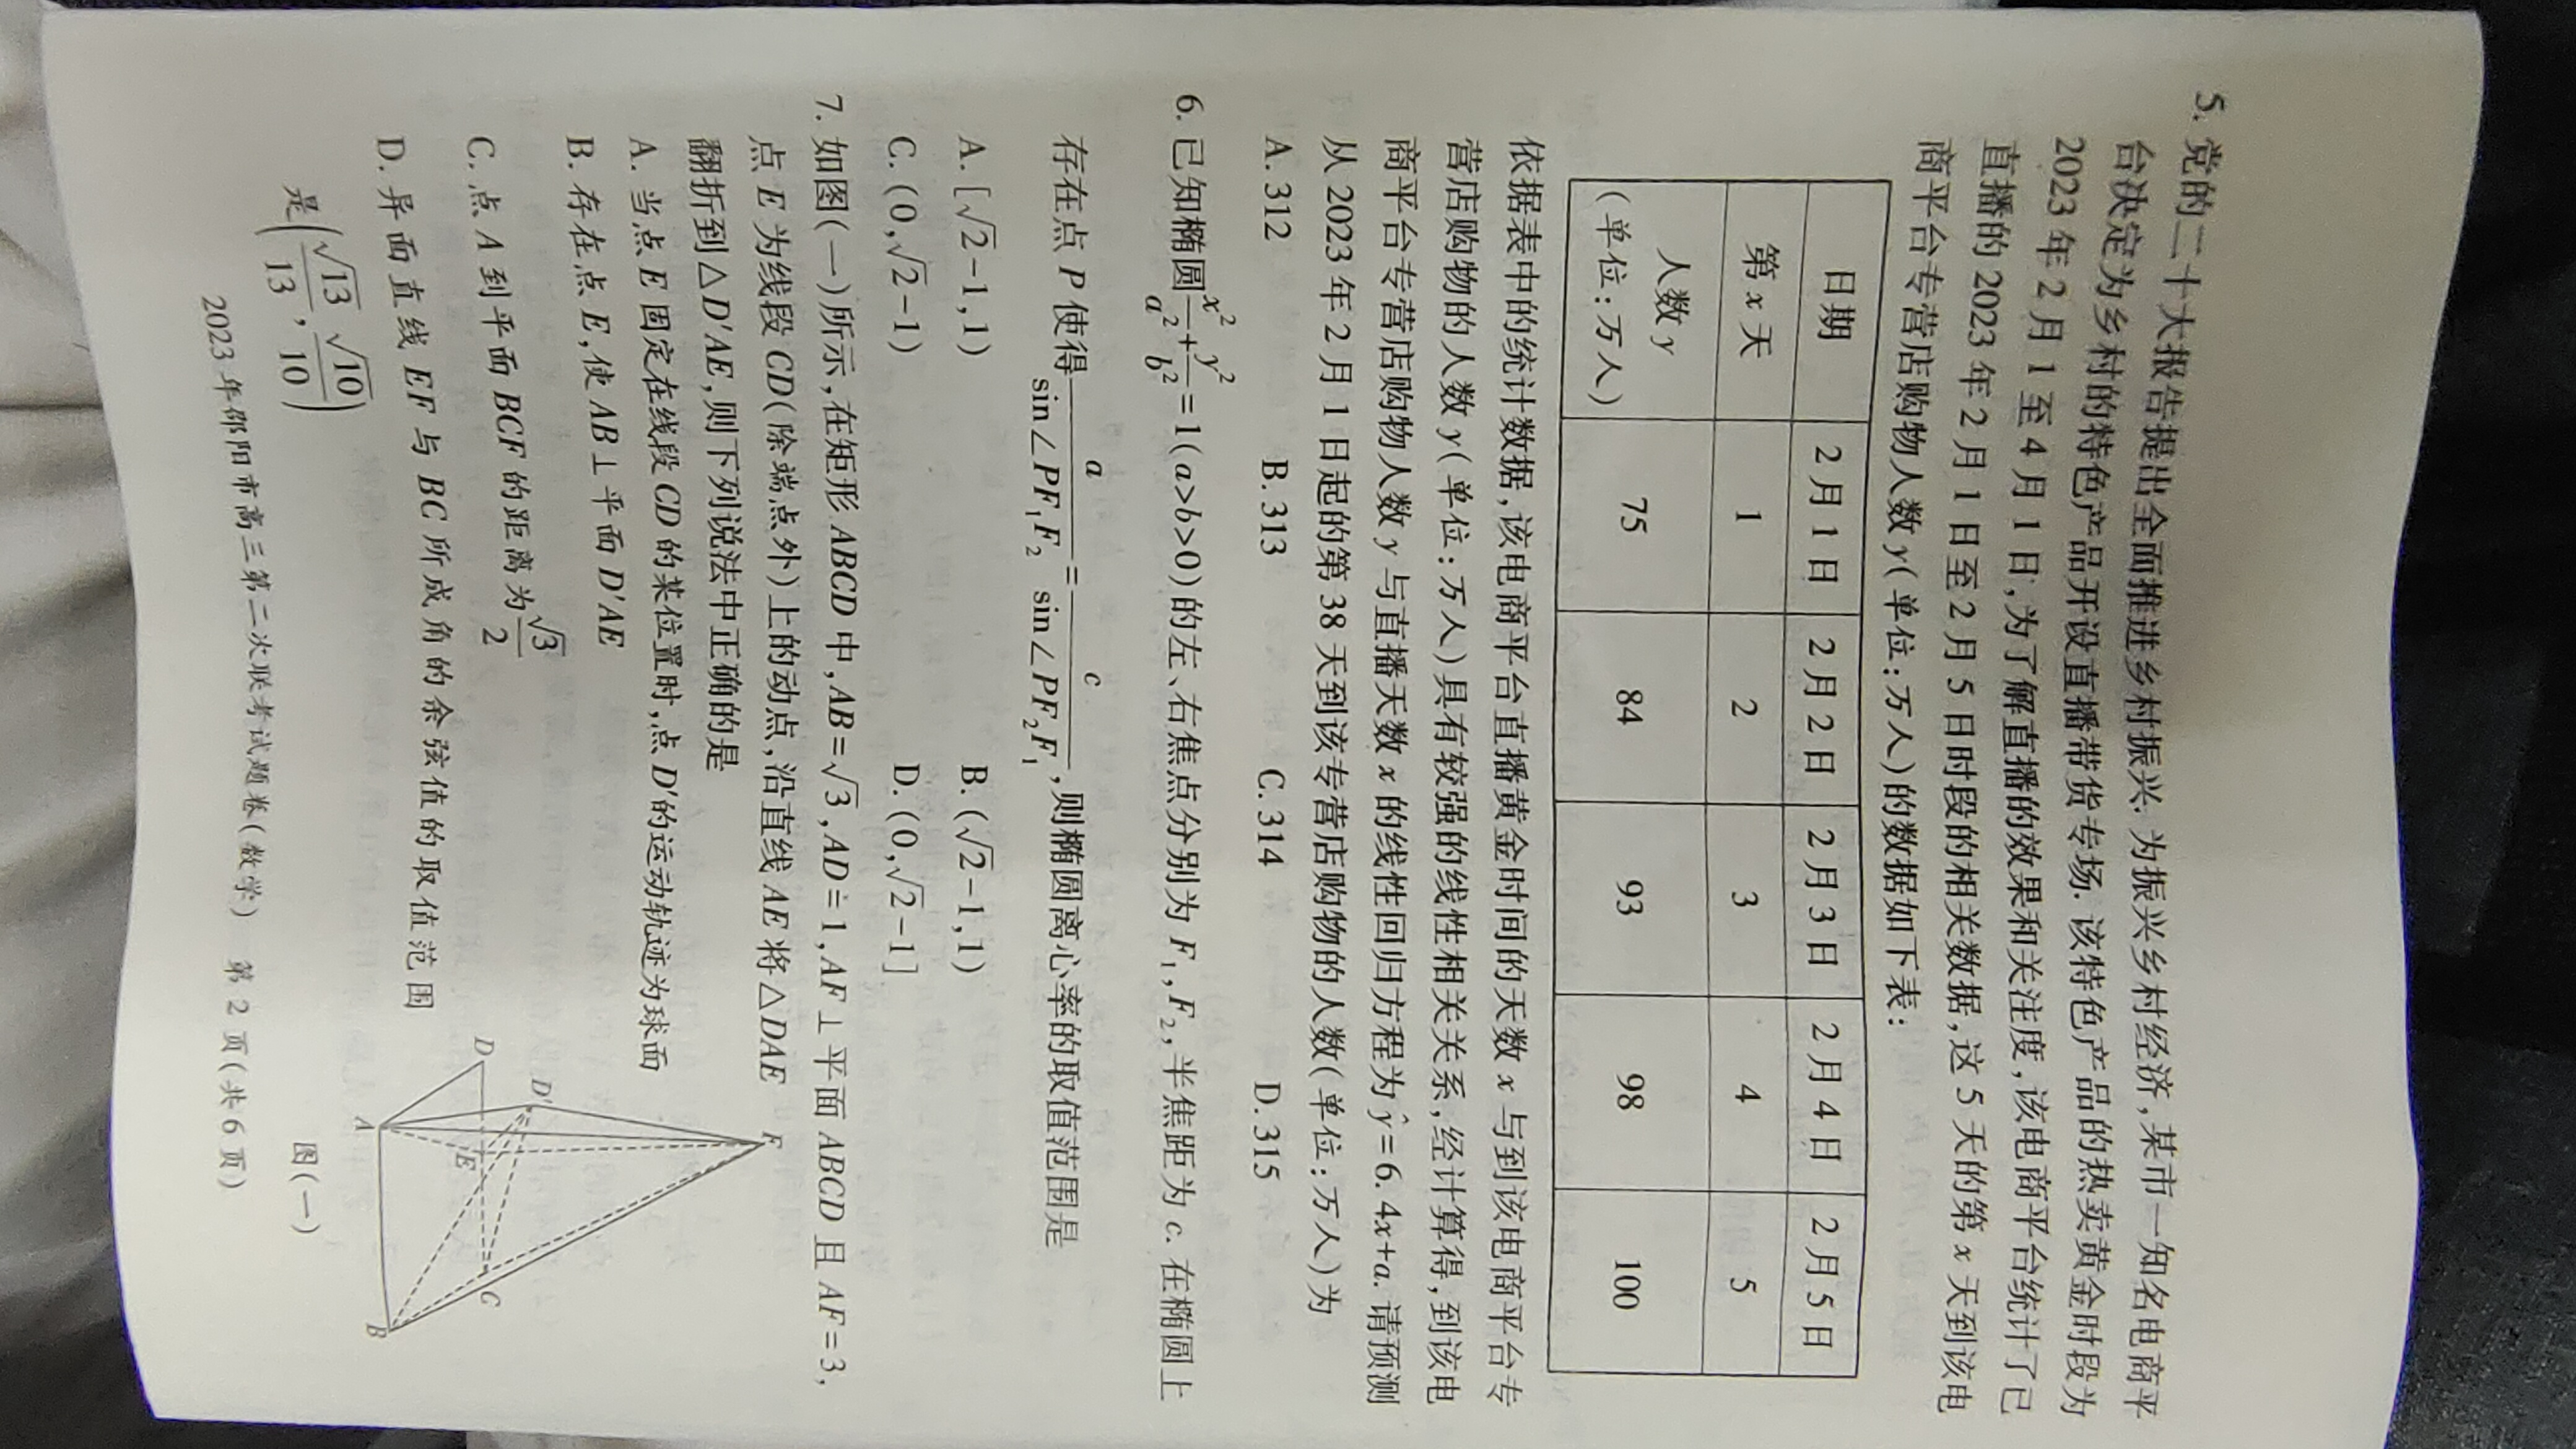 5. 党的二十大报告提出全面推进乡村振兴. 为振兴乡村经济,某市一知名电商平
台决定为乡村的特色产品开设直播带货专场. 该特色产品的热卖黄金时段为
2023 年 2 月 1 至 4 月 1 日,为了解直播的效果和关注度,该电商平台统计了已
直播的 2023 年 2 月 1 日至 2 月 5 日时段的相关数据,这 5 天的第 x 天到该电
商平台专营店购物人数 y(单位:万人)的数据如下表:
日期 2 月 1 日 2 月 2 日 2 月 3 日 2 月 4 日 2 月 5 日
第 x 天 1 2 3 4 5
人数 y
(单位:万人) 75 84 93 98 100
依据表中的统计数据,该电商平台直播黄金时间的天数 x 与到该电商平台专
营店购物的人数 y(单位:万人)具有较强的线性相关关系,经计算得,到该电
商平台专营店购物人数 y 与直播天数 x 的线性回归方程为 ŷ=6.4x+a. 请预测
从 2023 年 2 月 1 日起的第 38 天到该专营店购物的人数(单位:万人)为
A. 312 B. 313 C. 314 D. 315
6. 已知椭圆 x²/a²+y²/b²=1(a>b>0)的左、右焦点分别为 F₁,F₂,半焦距为 c. 在椭圆上
存在点 P 使得 a/sin∠PF₁F₂=c/sin∠PF₂F₁,则椭圆离心率的取值范围是
A. [√2-1,1) B. (√2-1,1)
C. (0,√2-1) D. (0,√2-1]
7. 如图(一)所示,在矩形 ABCD 中,AB=√3,AD=1,AF⊥平面 ABCD 且 AF=3,
点 E 为线段 CD(除端点外)上的动点,沿直线 AE 将△DAE
翻折到△D'AE,则下列说法中正确的是
A. 当点 E 固定在线段 CD 的某位置时,点 D'的运动轨迹为球面
B. 存在点 E,使 AB⊥平面 D'AE
C. 点 A 到平面 BCF 的距离为 √3/2
D. 异面直线 EF 与 BC 所成角的余弦值的取值范围
是(√13/13, √10/10)
F
D'
D
E
C
A
B
图(一)
2023 年邵阳市高三第二次联考试题卷(数学) 第 2 页(共 6 页)